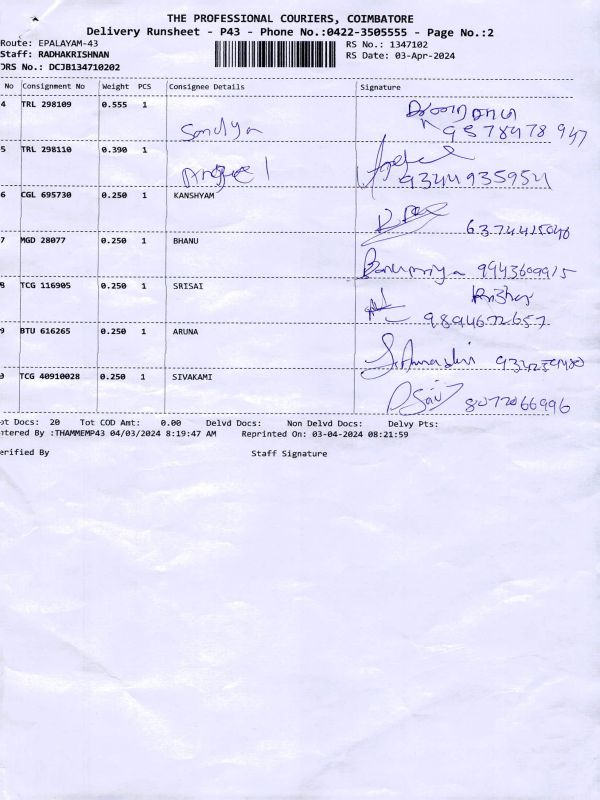 THE PROFESSIONAL COURIERS, COIMBATORE
Delivery Runsheet - P43 - Phone No.:0422-3505555 - Page No.:2
Route: EPALAYAM-43 RS No.: 1347102
Staff: RADHAKRISHNAN RS Date: 03-Apr-2024
DRS No.: DCJB134710202
No Consignment No Weight PCS Consignee Details Signature
4 TRL 298109 0.555 1
Sandya
5 TRL 298110 0.390 1
9344935954
6 CGL 695730 0.250 1 KANSHYAM
7 MGD 28077 0.250 1 BHANU
Banupriya 9943609915
8 TCG 116905 0.250 1 SRISAI
9894672657
9 BTU 616265 0.250 1 ARUNA
0 TCG 40910028 0.250 1 SIVAKAMI
8072066996
ot Docs: 20 Tot COD Amt: 0.00 Delvd Docs: Non Delvd Docs: Delvy Pts:
ntered By :THAMMEMP43 04/03/2024 8:19:47 AM Reprinted On: 03-04-2024 08:21:59
erified By Staff Signature